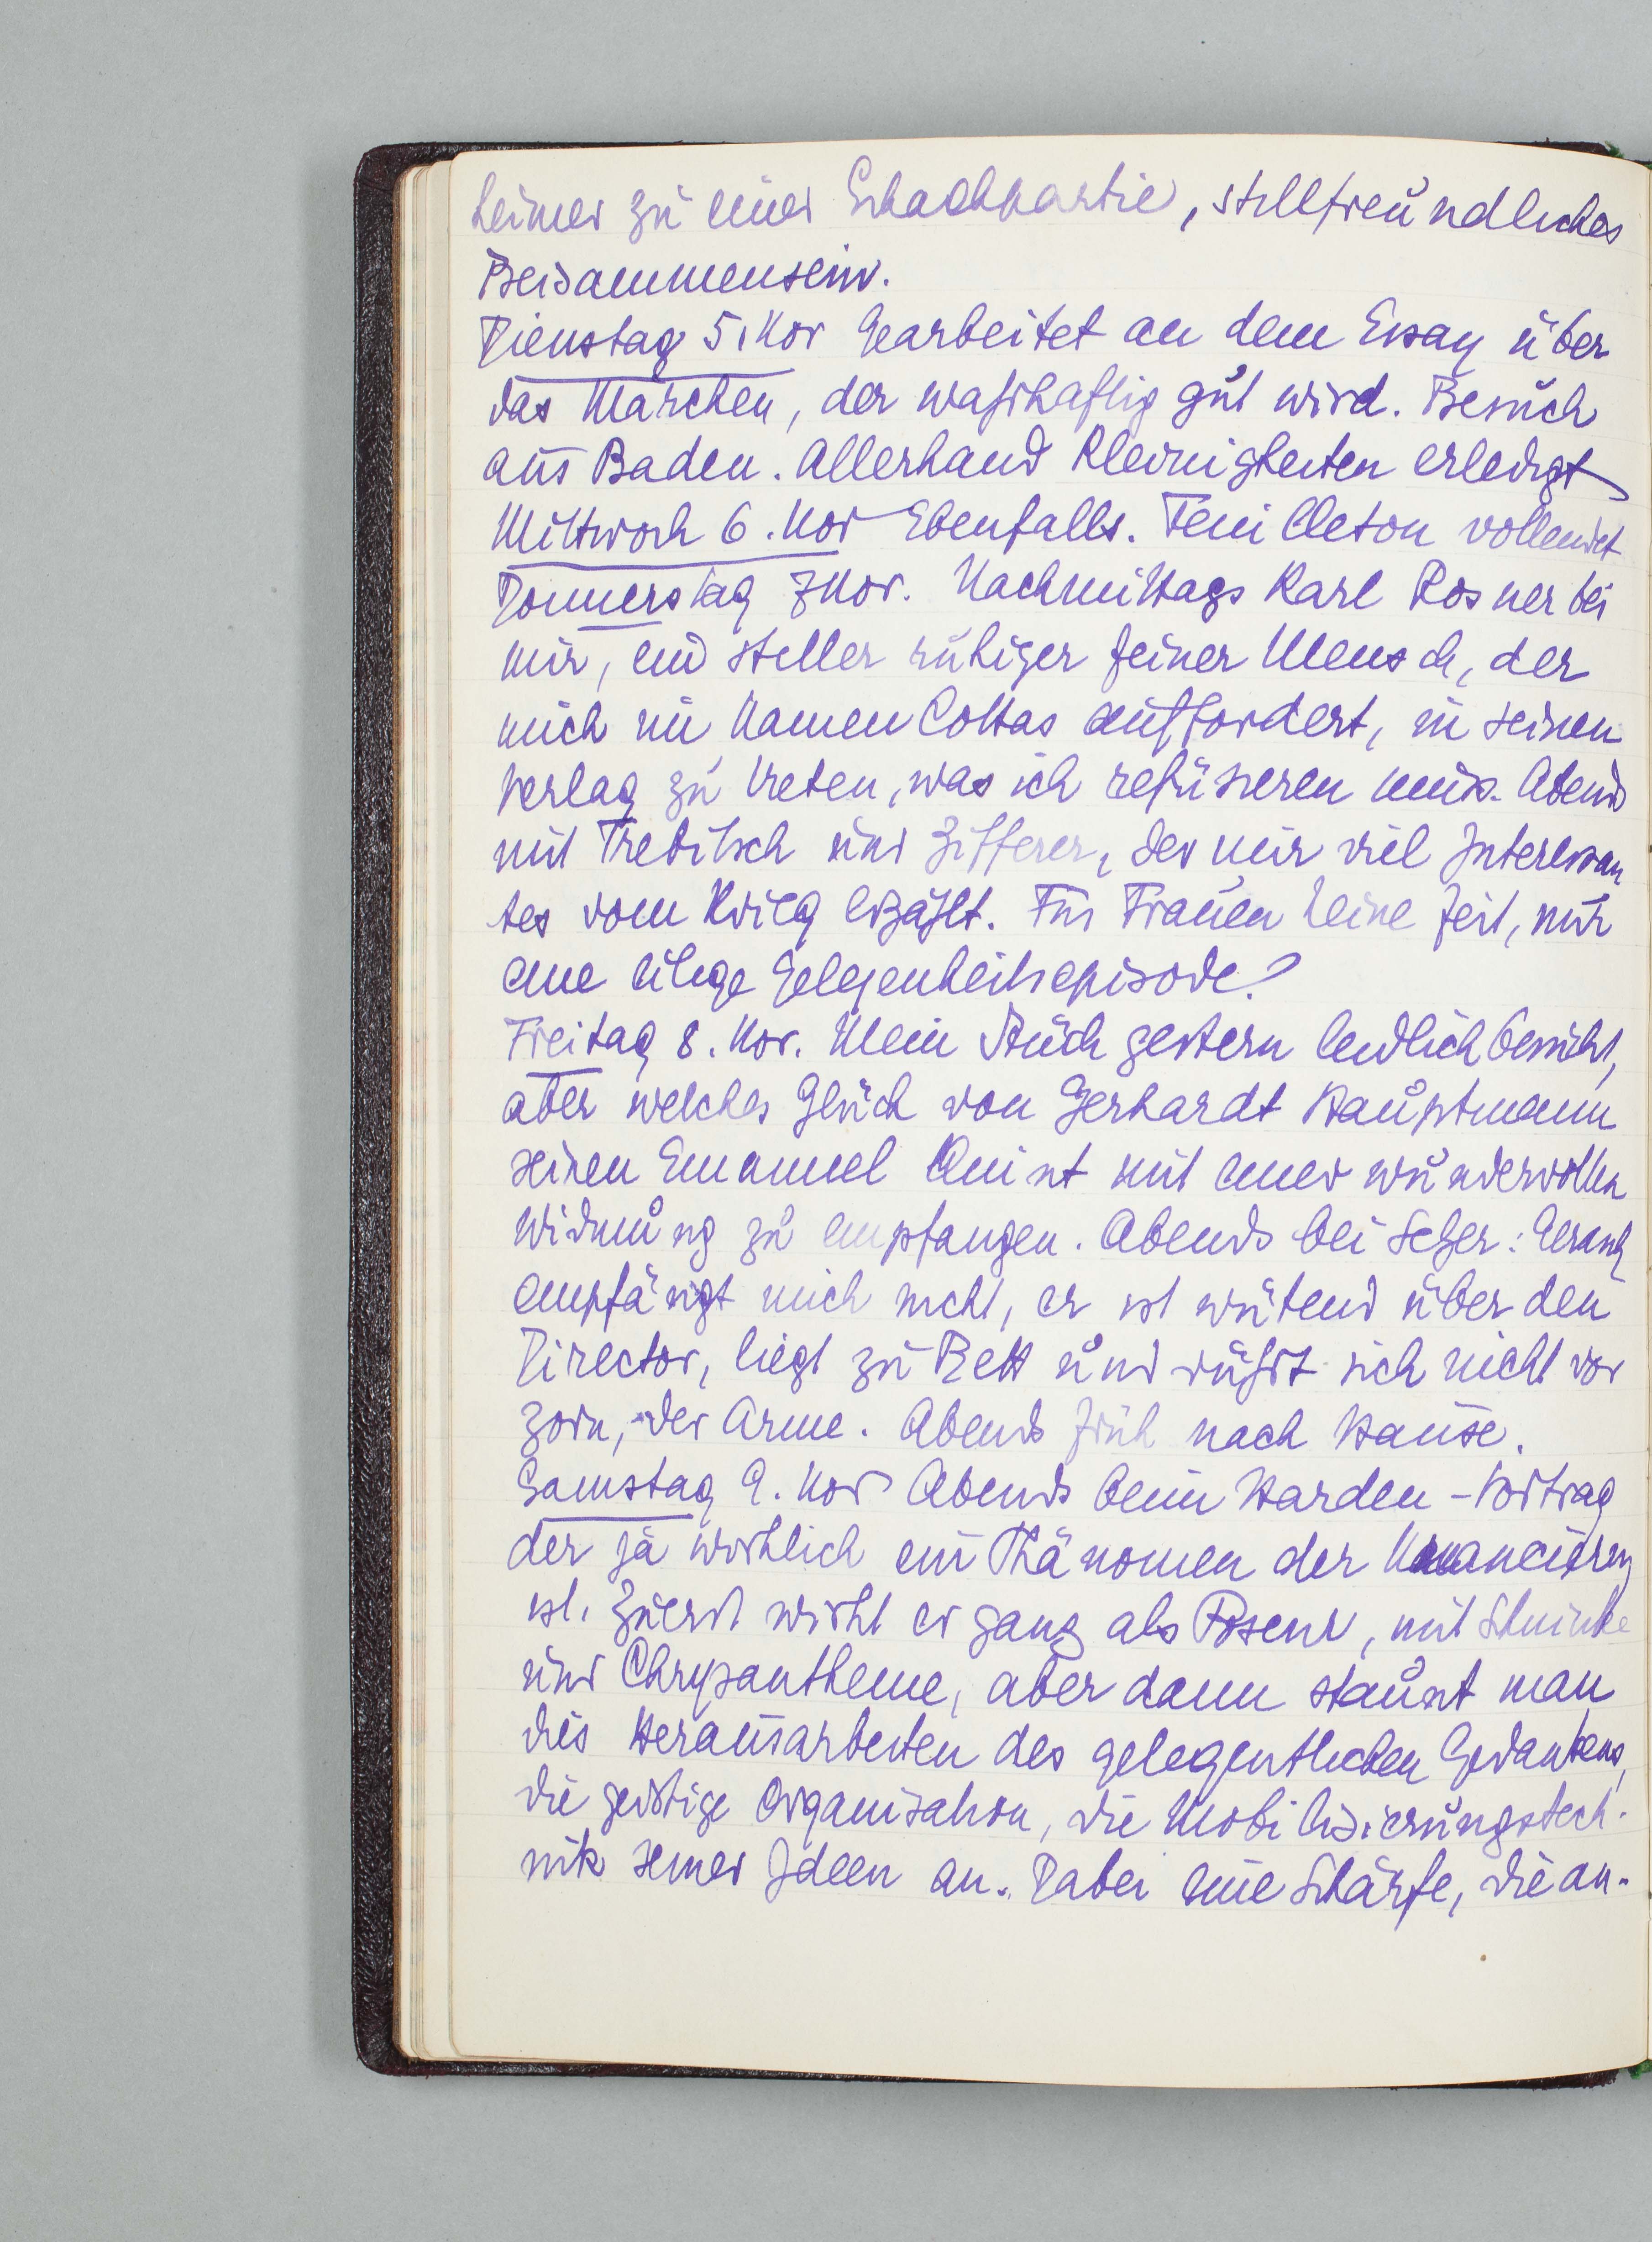 heimer zu einer Schachpartie, stillfreundliches
Beisammensein.
Dienstag 5. Nov Gearbeitet an dem Essay über
das Märchen, der wahrhaftig gut wird. Besuch
aus Baden. Allerhand Kleinigkeiten erledigt
Mittwoch 6. Nov Ebenfalls. Feuilleton vollendet
Donnerstag 7 Nov. Nachmittags Karl Rosner bei
mir, ein stiller ruhiger feiner Mensch, der
mich im Namen Cottas auffordert, in seinen
Verlag zu treten, was ich refüsieren muss. Abend
mit Trebitsch und Zifferer, der mir viel Interessan
tes vom Krieg erzählt. Für Frauen keine Zeit, nur
eine eilige Gelegenheitsepisode.
Freitag 8. Nov. Mein Stück gestern leidlich besucht,
aber welches Glück von Gerhardt Hauptmann
seinen Emanuel Quint mit einer wundervollen
Widmung zu empfangen. Abends bei
empfängt mich nicht, er ist wütend über den
Director, liegt zu Bett und rührt sich nicht vor
Zorn, der Arme. Abends früh nach Hause.
Samstag 9. Nov Abends beim Harden-Vortrag
der ja wirklich ein Phänomen der
ist. Zuerst wirkt er ganz als Poseur, mit Schminke
und Chrysantheme, aber dann staunt man
dies Herausarbeiten des gelegentlichen Gedankens,
die geistige Organisation, die Mobilisierungstech-
nik seiner Ideen an. Dabei eine Schärfe, die an-